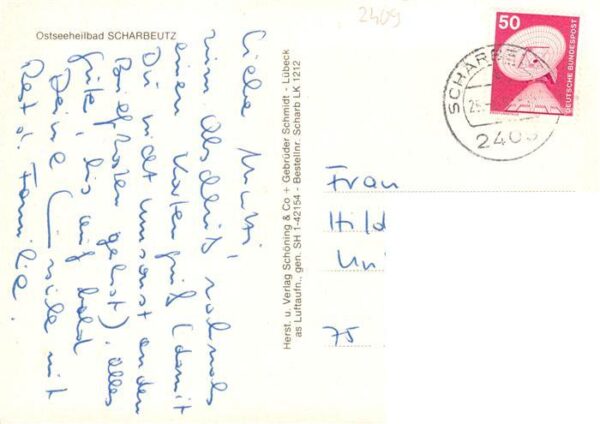 Ostseeheilbad SCHARBEUTZ
2409
50
DEUTSCHE BUNDESPOST
SCHARBE
2409
Liebe Mutti,
zum Abschluß nochmals
einen Kartengruß (damit
Du nicht umsonst an den
Briefkasten gehst). Alles
Gute, bis auf bald
Deine mit
Rest d. Familie.
Herst. u. Verlag Schöning & Co + Gebrüder Schmidt - Lübeck
as Luftaufn., gen. SH 1-42154 - Bestellnr. Scharb LK 1212
Frau
Hild
Un
75